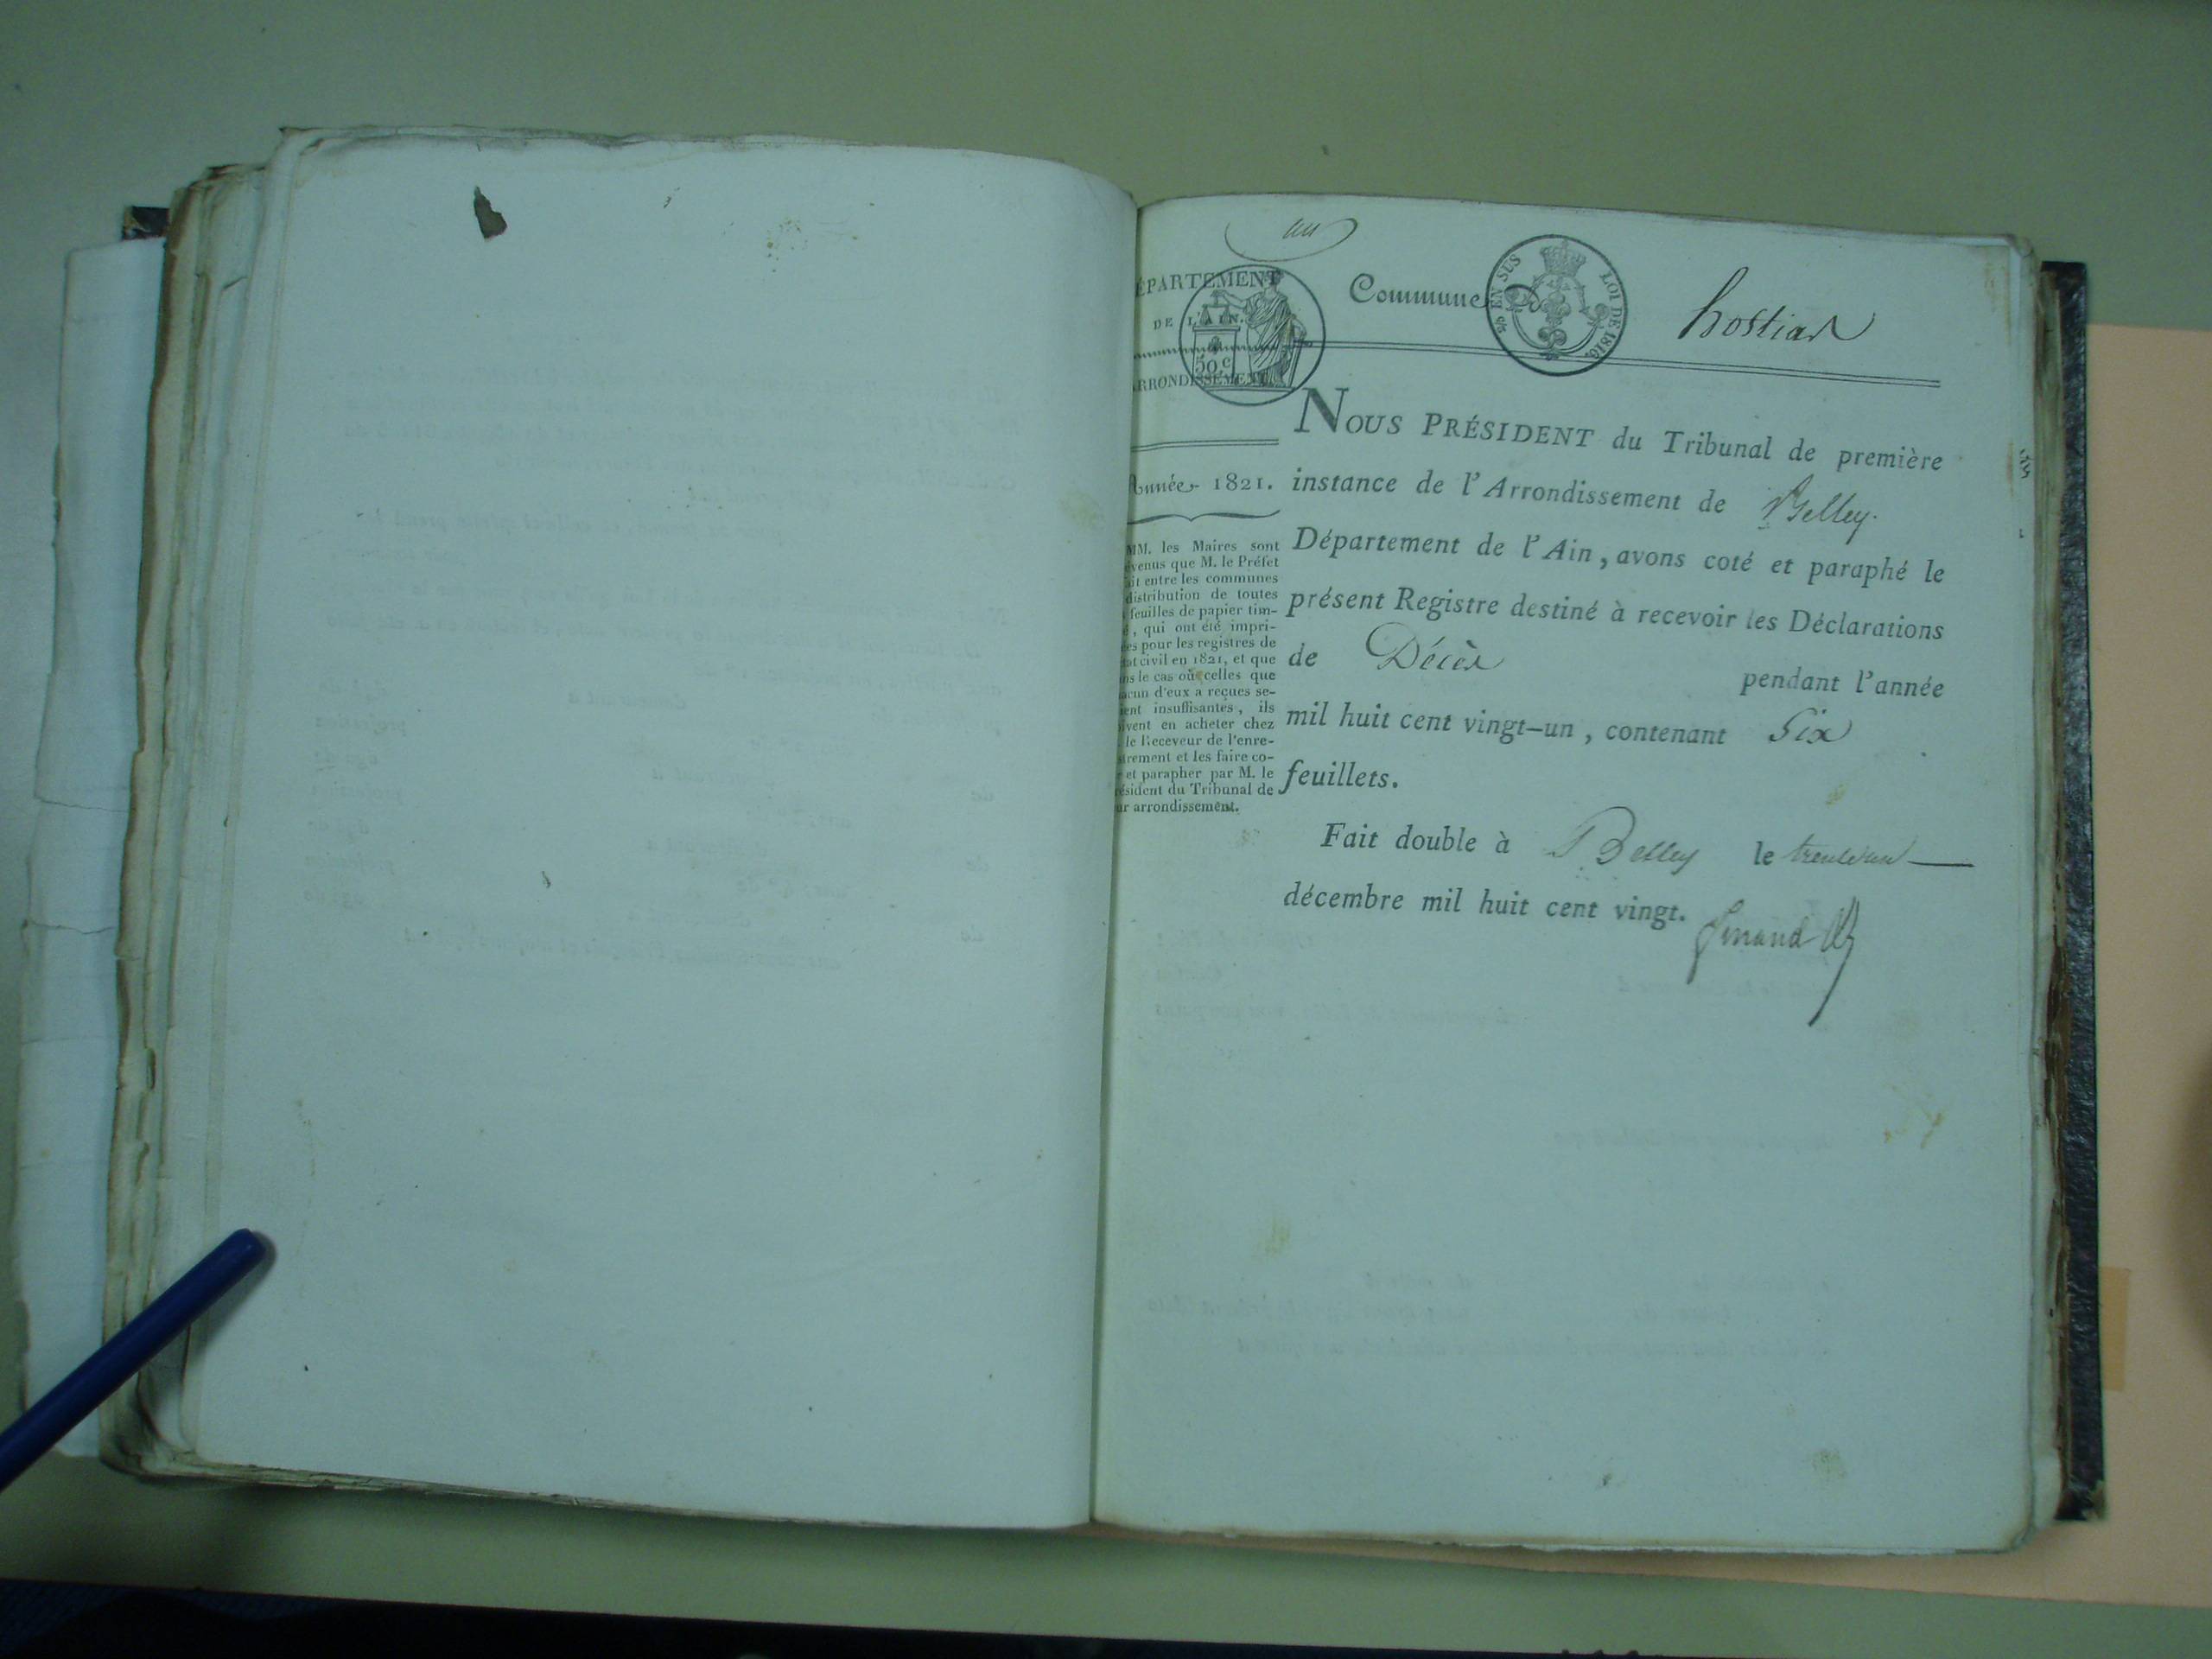 ÉPARTEMENT
DE L'AIN.
RRONDISSEMENT
50 c
Commune
EN SUS LOI DE 1816.
hostias
Année 1821.
MM. les Maires sont
venus que M. le Préfet
it entre les communes
distribution de toutes
feuilles de papier tim-
, qui ont été impri-
es pour les registres de
tat civil en 1821, et que
ns le cas où celles que
cun d'eux a reçues se-
ient insuffisantes, ils
ivent en acheter chez
le Receveur de l'enre-
trement et les faire co-
r et parapher par M. le
ésident du Tribunal de
ur arrondissement.
NOUS PRÉSIDENT du Tribunal de première
instance de l'Arrondissement de Belley.
Département de l'Ain, avons coté et paraphé le
présent Registre destiné à recevoir les Déclarations
de Décès pendant l'année
mil huit cent vingt-un, contenant Six
feuillets.
Fait double à Belley le trente un
décembre mil huit cent vingt.